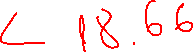 < 18.66